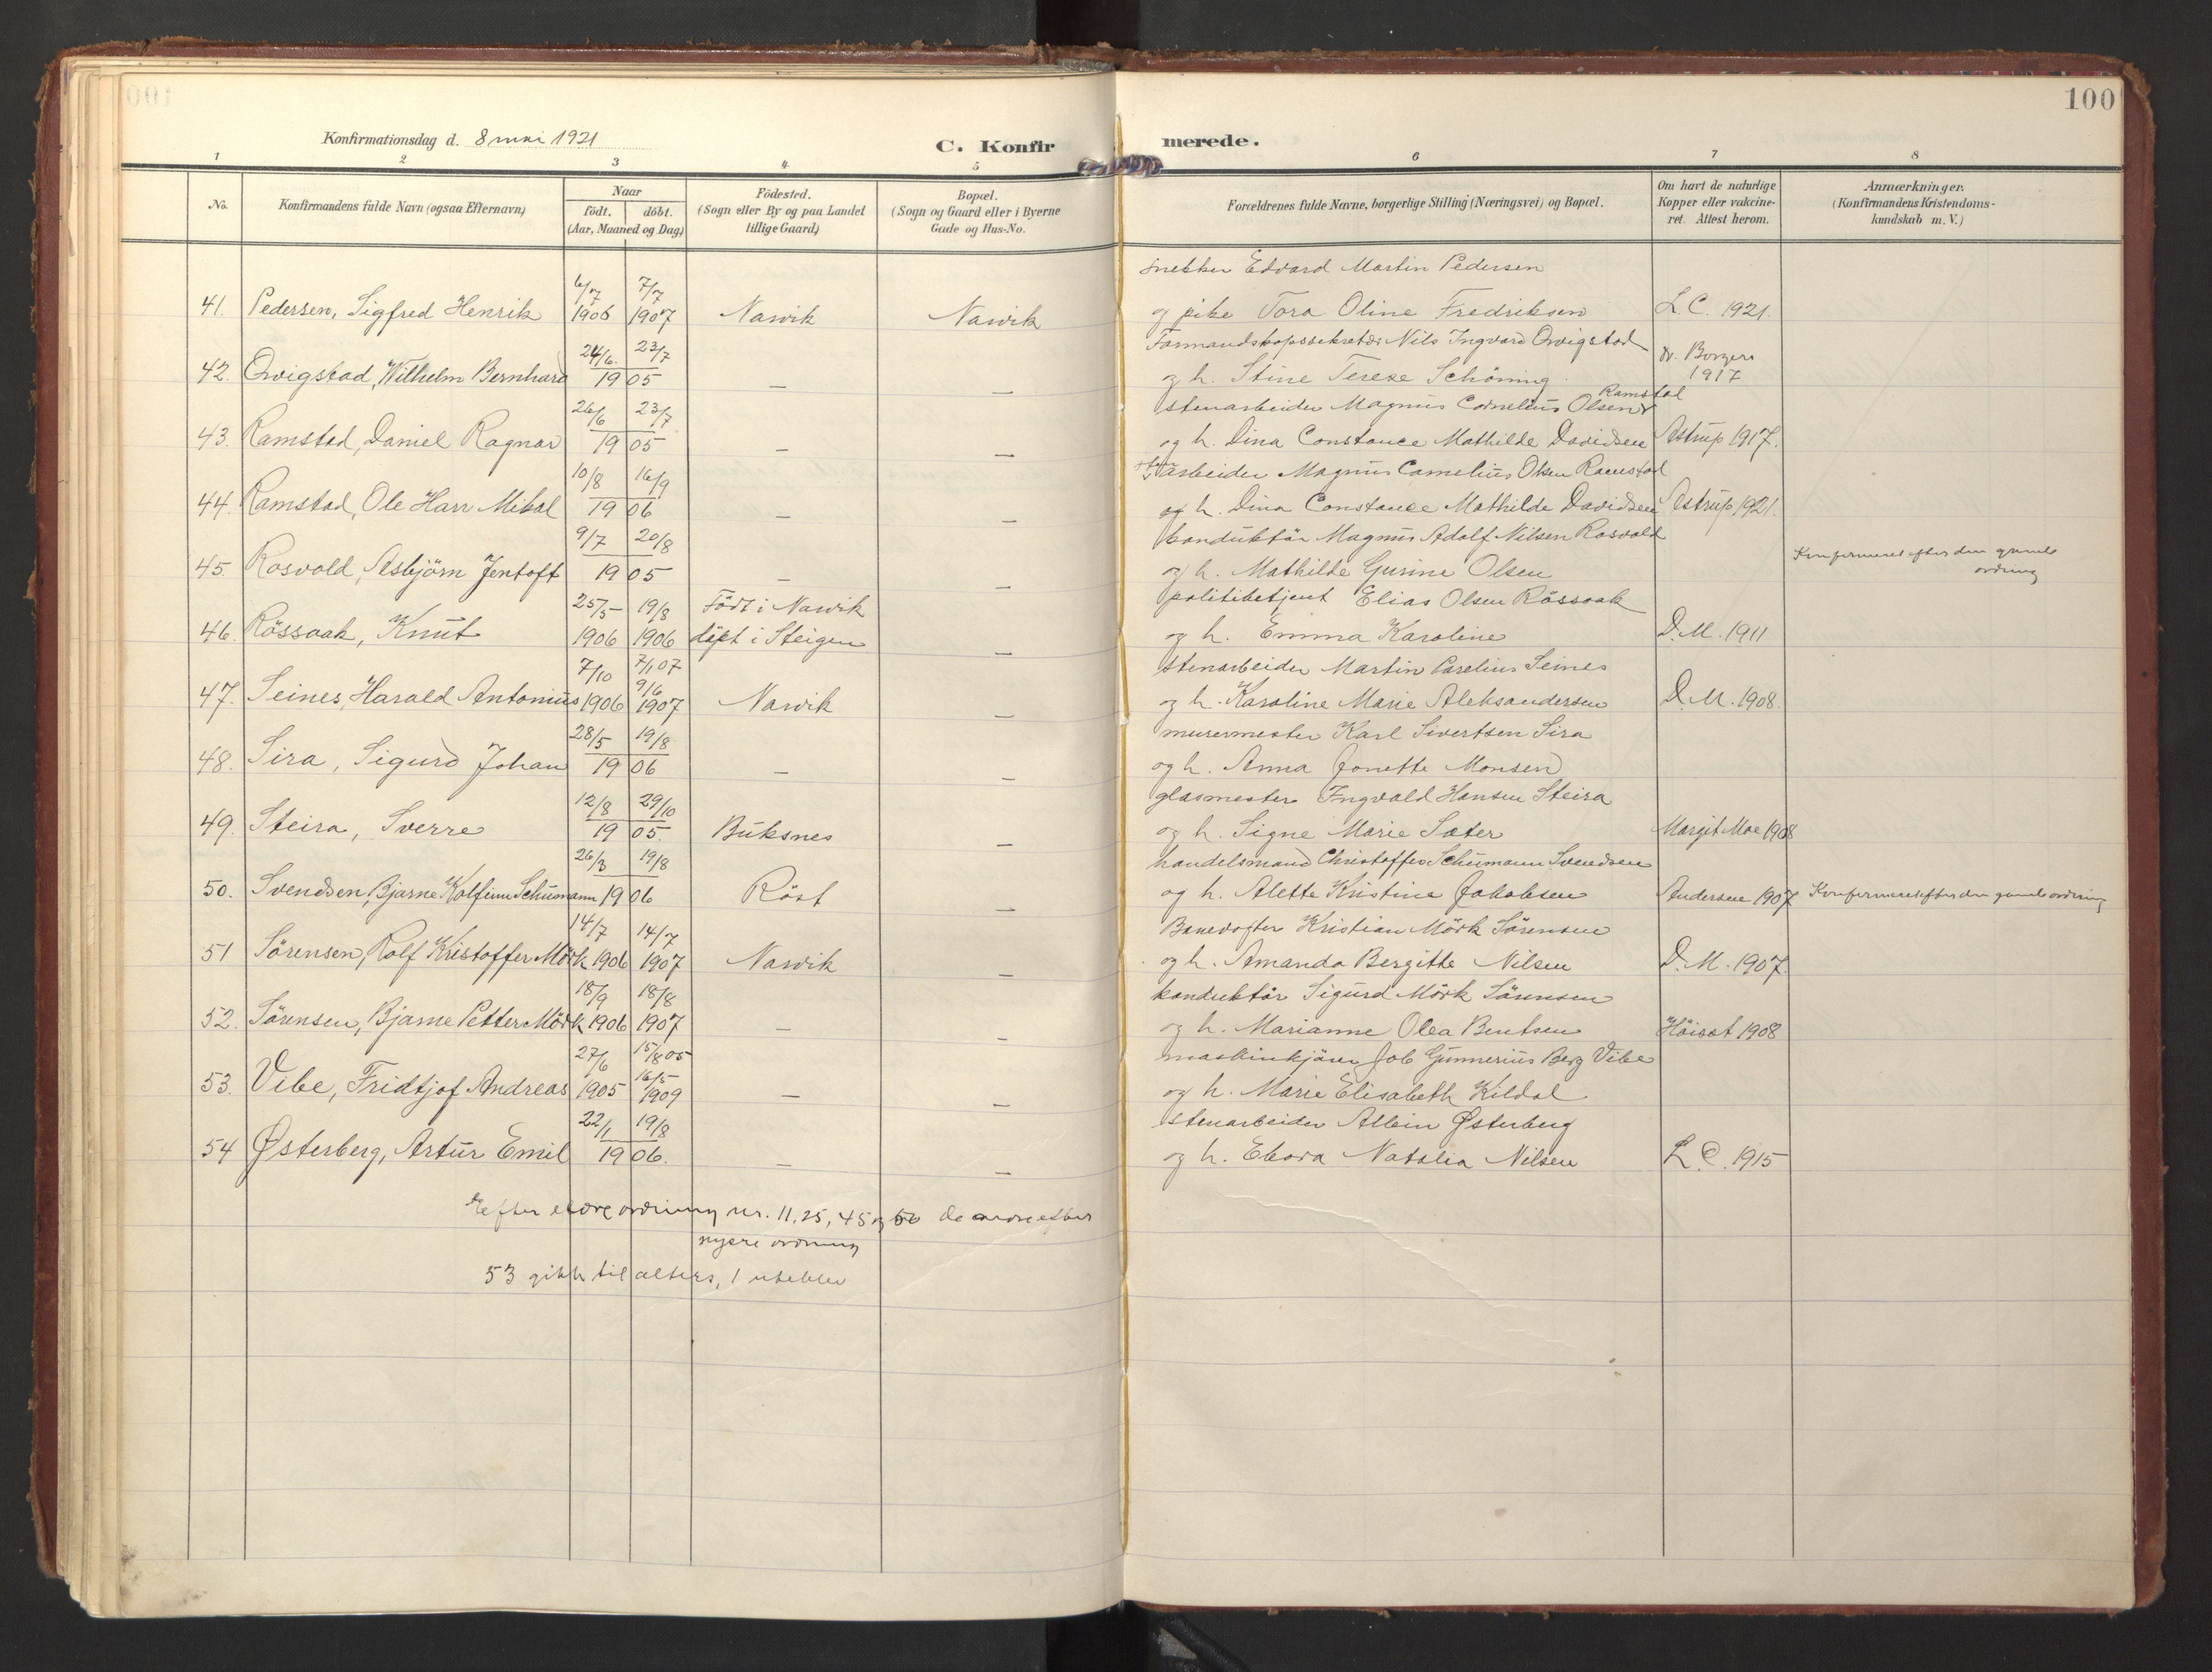 100
Konfirmationsdag d. 8 mai 1921
C. Konfirmerede.
1 2 3 4 5 6 7 8
No.
Konfirmandens fulde Navn (ogsaa Efternavn)
Naar
födt. döbt.
(Aar, Maaned og Dag)
Födested.
(Sogn eller By og paa Landet
tillige Gaard)
Bopæl.
(Sogn og Gaard eller i Byerne
Gade og Hus-No.
Forældrenes fulde Navne, borgerlige Stilling (Næringsvei) og Bopæl.
Om havt de naturlige
Kopper eller vakcine-
ret. Attest herom.
Anmærkninger.
(Konfirmandens Kristendoms-
kundskab m. V.)
snekker Edvard Martin Pedersen
6/7 7/7
41. Pedersen, Sigfred Henrik 1906 1907 Narvik Narvik og pike Tora Oline Fredriksen L. C. 1921.
24/6. 23/7 Formandskapssekretær Nils Ingvard Qvigstad
42. Qvigstad, Wilhelm Bernhard 1905 — — og h. Stine Terese Schöning. dr. Borgers 1917
26/6 23/7 stenarbeider Magnus Cornelius Olsen Ramstad
43. Ramstad, Daniel Ragnar 1905 — — og h. Dina Constance Mathilde Davidsen Astrup 1917.
10/8 16/9 arbeider Magnus Cornelius Olsen Ramstad
44. Ramstad, Ole Harr Mikal 1906 — — og h. Dina Constance Mathilde Davidsen Astrup 1921.
9/7 20/8 konduktör Magnus Adolf Nilsen Rosvold
45. Rosvold, Asbjörn Jentoft 1905 — — og h. Mathilde Gurine Olsen Konfirmeret efter den gamle ordning
25/5 19/8 Födt i Narvik politibetjent Elias Olsen Rössvak
46. Rössvak, Knut 1906 1906 döpt i Steigen — og h. Emma Karoline D. M. 1911
7/10 7/1 07 9/6 stenarbeider Martin Parelius Seines
47. Seines, Harald Antonius 1906 1907 Narvik — og h. Karoline Marie Aleksandersen D. M. 1908.
28/5 19/8 murermester Karl Sivertsen Sira
48. Sira, Sigurd Johan 1906 — — og h. Anna Jonette Monsen
12/8 29/10 glasmester Ingvald Hansen Steira
49. Steira, Sverre 1905. Buksnes — og h. Signe Marie Sæter Margit Moe 1908
26/3 19/8 handelsmand Christoffer Schumann Svendsen
50. Svendsen, Bjarne Kolfinn Schumann 1906 Röst — og h. Alette Kristine Jakobsen Andersen 1907 Konfirmeret efter den gamle ordning
14/7 14/7 Banevogter Kristian Mörk Sörensen
51 Sörensen, Rolf Kristoffer Mörk 1906 1907 Narvik — og h. Amanda Bergitte Nilsen D. M. 1907.
18/9 18/8 konduktör Sigurd Mörk Sörensen
52. Sörensen, Bjarne Petter Mörk 1906 1907 — — og h. Marianne Olea Bentsen Höisæt 1908
27/6 15/8 05 16/5 maskinkjörer Job Gunnerius Berg Vibe
53. Vibe, Fridtjof Andreas 1905 1909 — — og h. Marie Elisabeth Kildal
22/1 19/8 stenarbeider Albin Østerberg
54 Østerberg, Artur Emil 1906. — — og h. Ebora Natalia Nilsen L. C. 1915
Efter eldre ordning nr. 11, 25, 45 og 50 de andre efter
nyere ordning
53 gikk til alters, 1 uteblev